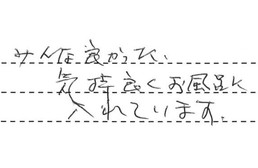 みんな良かった、
気持良くお風呂に
入れています。